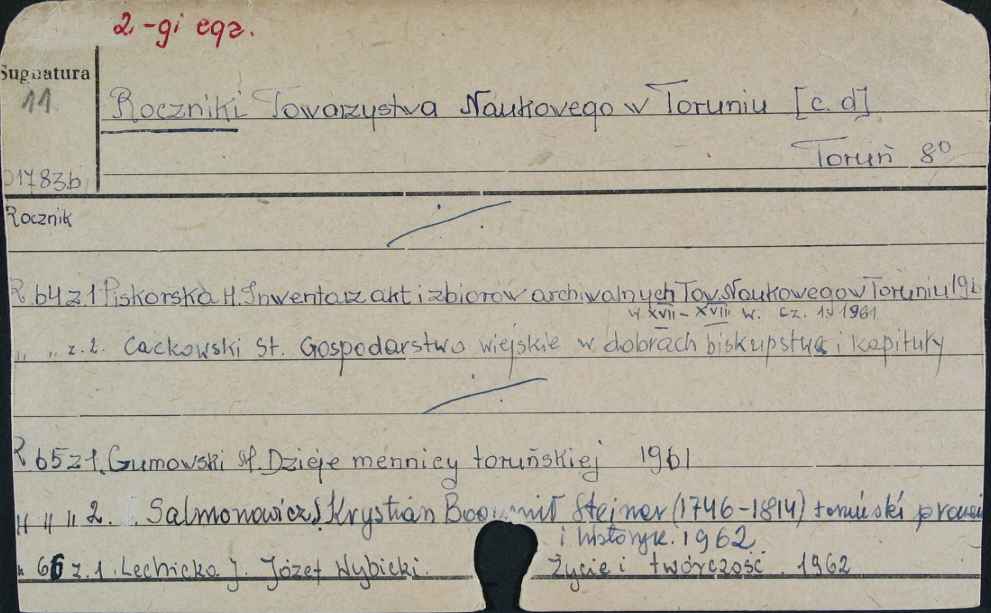 2-gi egz.
Sygnatura
11
Roczniki Towarzystwa Naukowego w Toruniu [c.d]
Toruń 8⁰
01783b
Rocznik
R 64 z.1 Piskorska H. Inwentarz akt i zbiorów archiwalnych Tow. Naukowego w Toruniu 196
w XVII - XVIII w. cz. 1) 1961
" " z. 2. Cackowski St. Gospodarstwo wiejskie w dobrach biskupstwa i kapituły
R 65 z 1. Gumowski M. Dzieje mennicy toruńskiej 1961
" " " 2. Salmonowicz S Krystian Bogumił Stejner (1746-1814) toruński prawni
i historyk. 1962
" 66 z. 1. Lechicka J. Józef Wybicki. Życie i twórczość. 1962